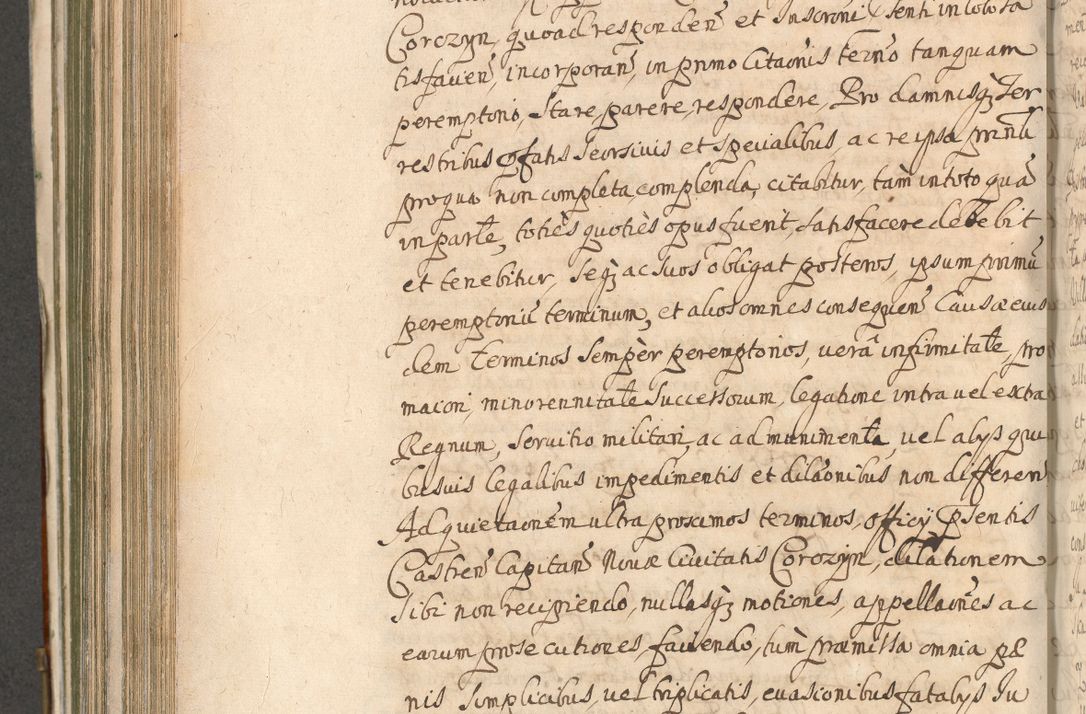 Corczyn, quoad responden̄ et Inscroni Senti in toto sa
tisfacien̄, incorporan̄, in primo Citaonis termo tanquam
peremptorio, Stare, parere, respondere, Pro damnisqȝ Ter
restribus pfatis Seorsivis et specialibus, ac re ipsa prntli
pro qua non completa, complenda, citabitur, tam in toto quā
in parte, toties quoties opus fuerit, Satisfacere debebit
et tenebitur, Seqȝ ac Suos obligat posteros, ipsum primū
peremptoriū terminum, et alios omnes consequen̄ Causæ eius
dem terminos Semper peremptorios, verā infirmitate, pro
maiori, minorennitate Successorum, legatione intra vel extra
Regnum, Servitio militari, ac ad munimenta, vel alys qui
busvis legalibus impedimentis et dilāonibus non differen̄
Ad quietaonem ultra proximos terminos, officij Psentis
Castren̄ Capitan̄ Novæ Civitatis Corczyn, dilationem
Sibi non recipiendo, nullasqȝ motiones, appellaōnes ac
earum prosecutiones, faciendo, tum præmissa omnia pæ
nis Simplicibus, vel triplicatis, evasionibus fatalys Iu